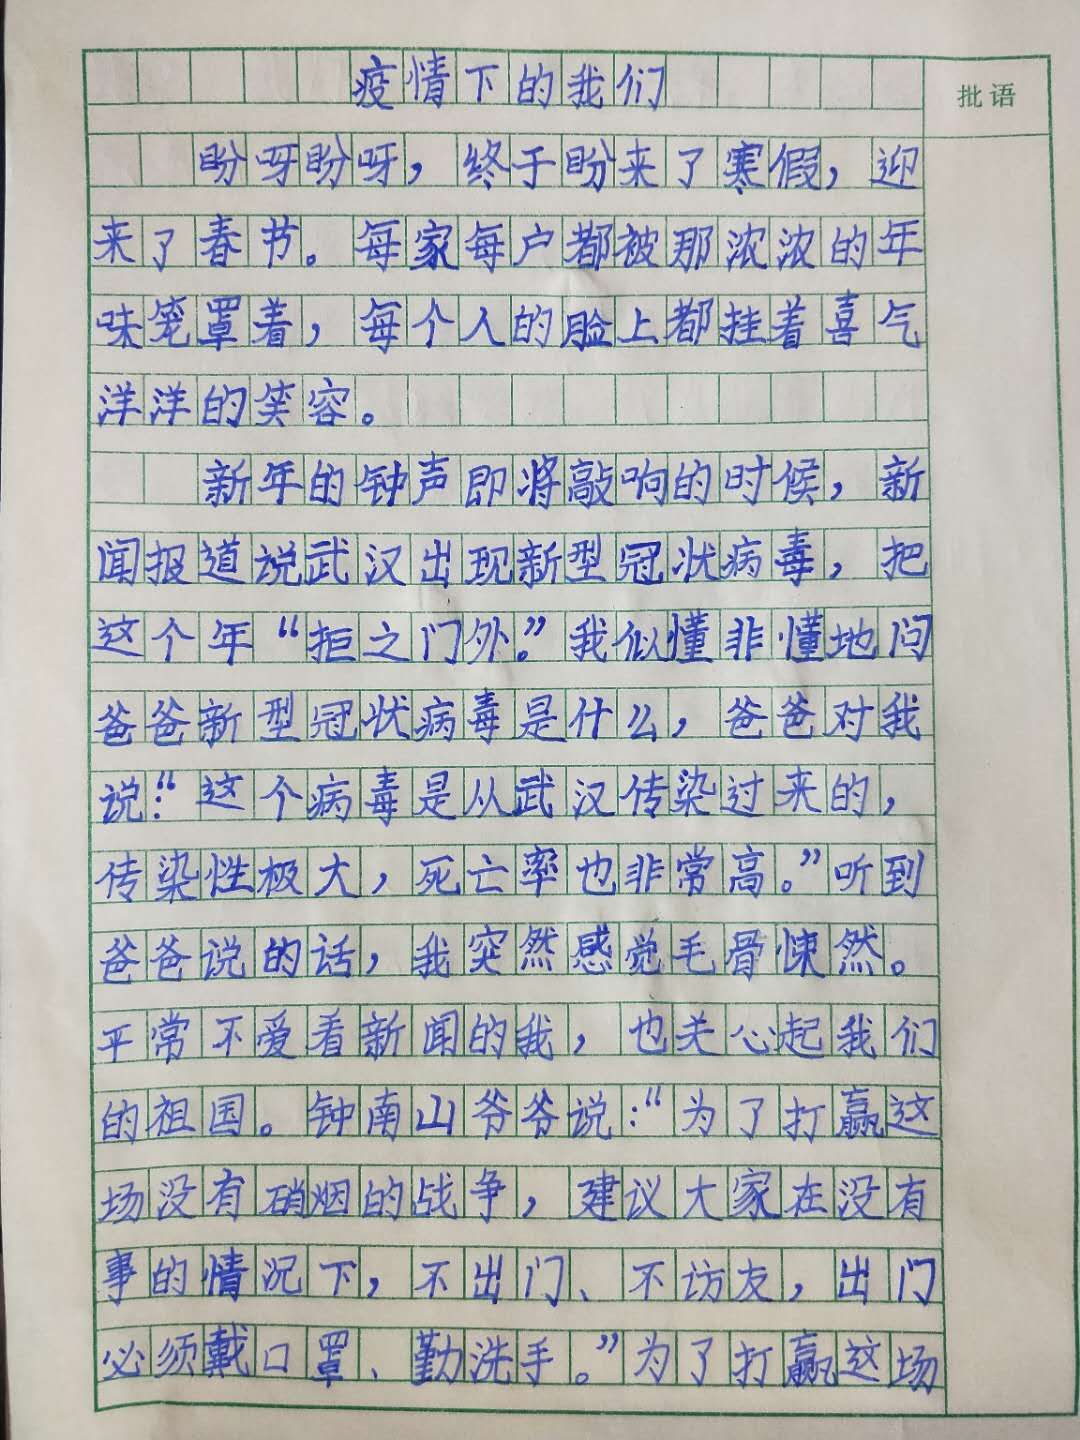 疫情下的我们
批语
盼呀盼呀，终于盼来了寒假，迎
来了春节。每家每户都被那浓浓的年
味笼罩着，每个人的脸上都挂着喜气
洋洋的笑容。
新年的钟声即将敲响的时候，新
闻报道说武汉出现新型冠状病毒，把
这个年“拒之门外。”我似懂非懂地问
爸爸新型冠状病毒是什么，爸爸对我
说：“这个病毒是从武汉传染过来的，
传染性极大，死亡率也非常高。”听到
爸爸说的话，我突然感觉毛骨悚然。
平常不爱看新闻的我，也关心起我们
的祖国。钟南山爷爷说：“为了打赢这
场没有硝烟的战争，建议大家在没有
事的情况下，不出门、不访友，出门
必须戴口罩、勤洗手。”为了打赢这场